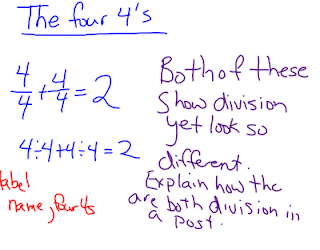 The four 4's
4/4 + 4/4 = 2
4÷4+4÷4=2
Both of these
Show division
yet look so
different.
Explain how the
are both division in
a post.
label
name, four 4s